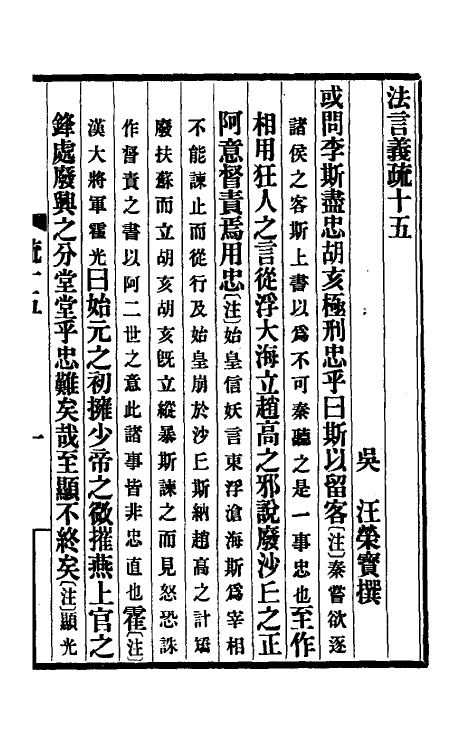 法言義疏十五
吳　汪榮寶撰
或問李斯盡忠胡亥極刑忠乎曰斯以留客〔注〕秦嘗欲逐
諸侯之客斯上書以爲不可秦聽之是一事忠也至作
相用狂人之言從浮大海立趙高之邪說廢沙丘之正
阿意督責焉用忠〔注〕始皇信妖言東浮滄海斯爲宰相
不能諫止而從行及始皇崩於沙丘斯納趙高之計矯
廢扶蘇而立胡亥胡亥旣立縱暴斯諫之而見怒恐誅
作督責之書以阿二世之意此諸事皆非忠直也霍〔注〕
漢大將軍霍光曰始元之初擁少帝之微摧燕上官之
鋒處廢興之分堂堂乎忠難矣哉至顯不終矣〔注〕顯光
疏十五
一